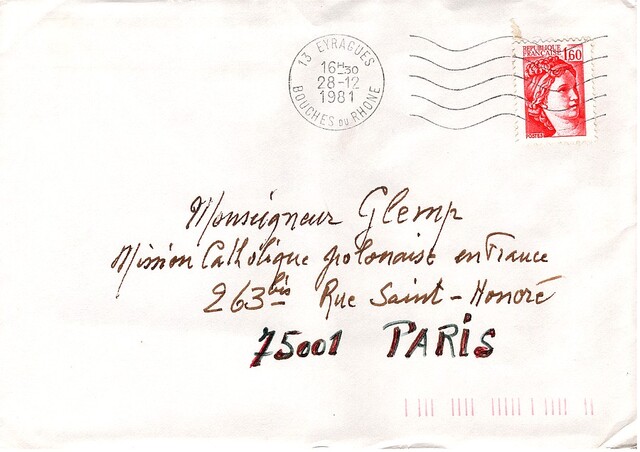 13 EYRAGUES
16H30
28-12
1981
BOUCHES DU RHONE
REPUBLIQUE
FRANCAISE
1,60
POSTES
Monseigneur Glemp
Mission Catholique polonaise en France
263 bis Rue Saint-Honoré
75001 PARIS